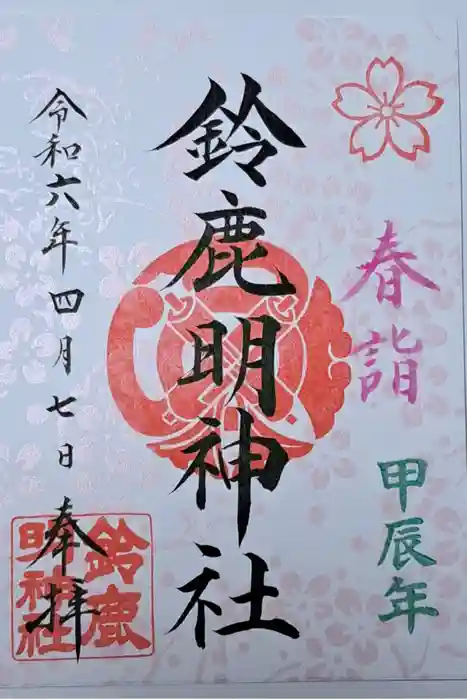 春詣
甲辰年
鈴鹿明神社
令和六年四月七日
奉拝
鈴鹿
明神社